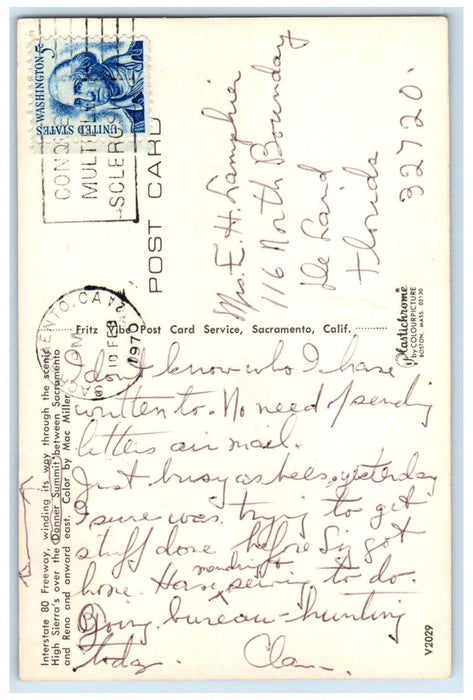 UNITED STATES
WASHINGTON 5c
MULTIPLE
SCLEROSIS
POST CARD
Mrs. E. H. Lamphier
116 North Boundary
De Land
Florida
32720.
SACRAMENTO, CA
10 FEB
1970
Fritz Post Card Service, Sacramento, Calif.
Plastichrome®
by COLOURPICTURE
BOSTON, MASS. 02130
Interstate 80 Freeway, winding its way through the scenic
High Sierra's over the Donner Summit between Sacramento
and Reno and onward east. Color by Mac Miller
I don't know who I have
written to. No need of sending
letters air mail.
Just busy as bees, yesterday
I sure was trying to get
stuff done before Sig got
home. Have sewing to do.
Going bureau-hunting
today. Clara.
V2029